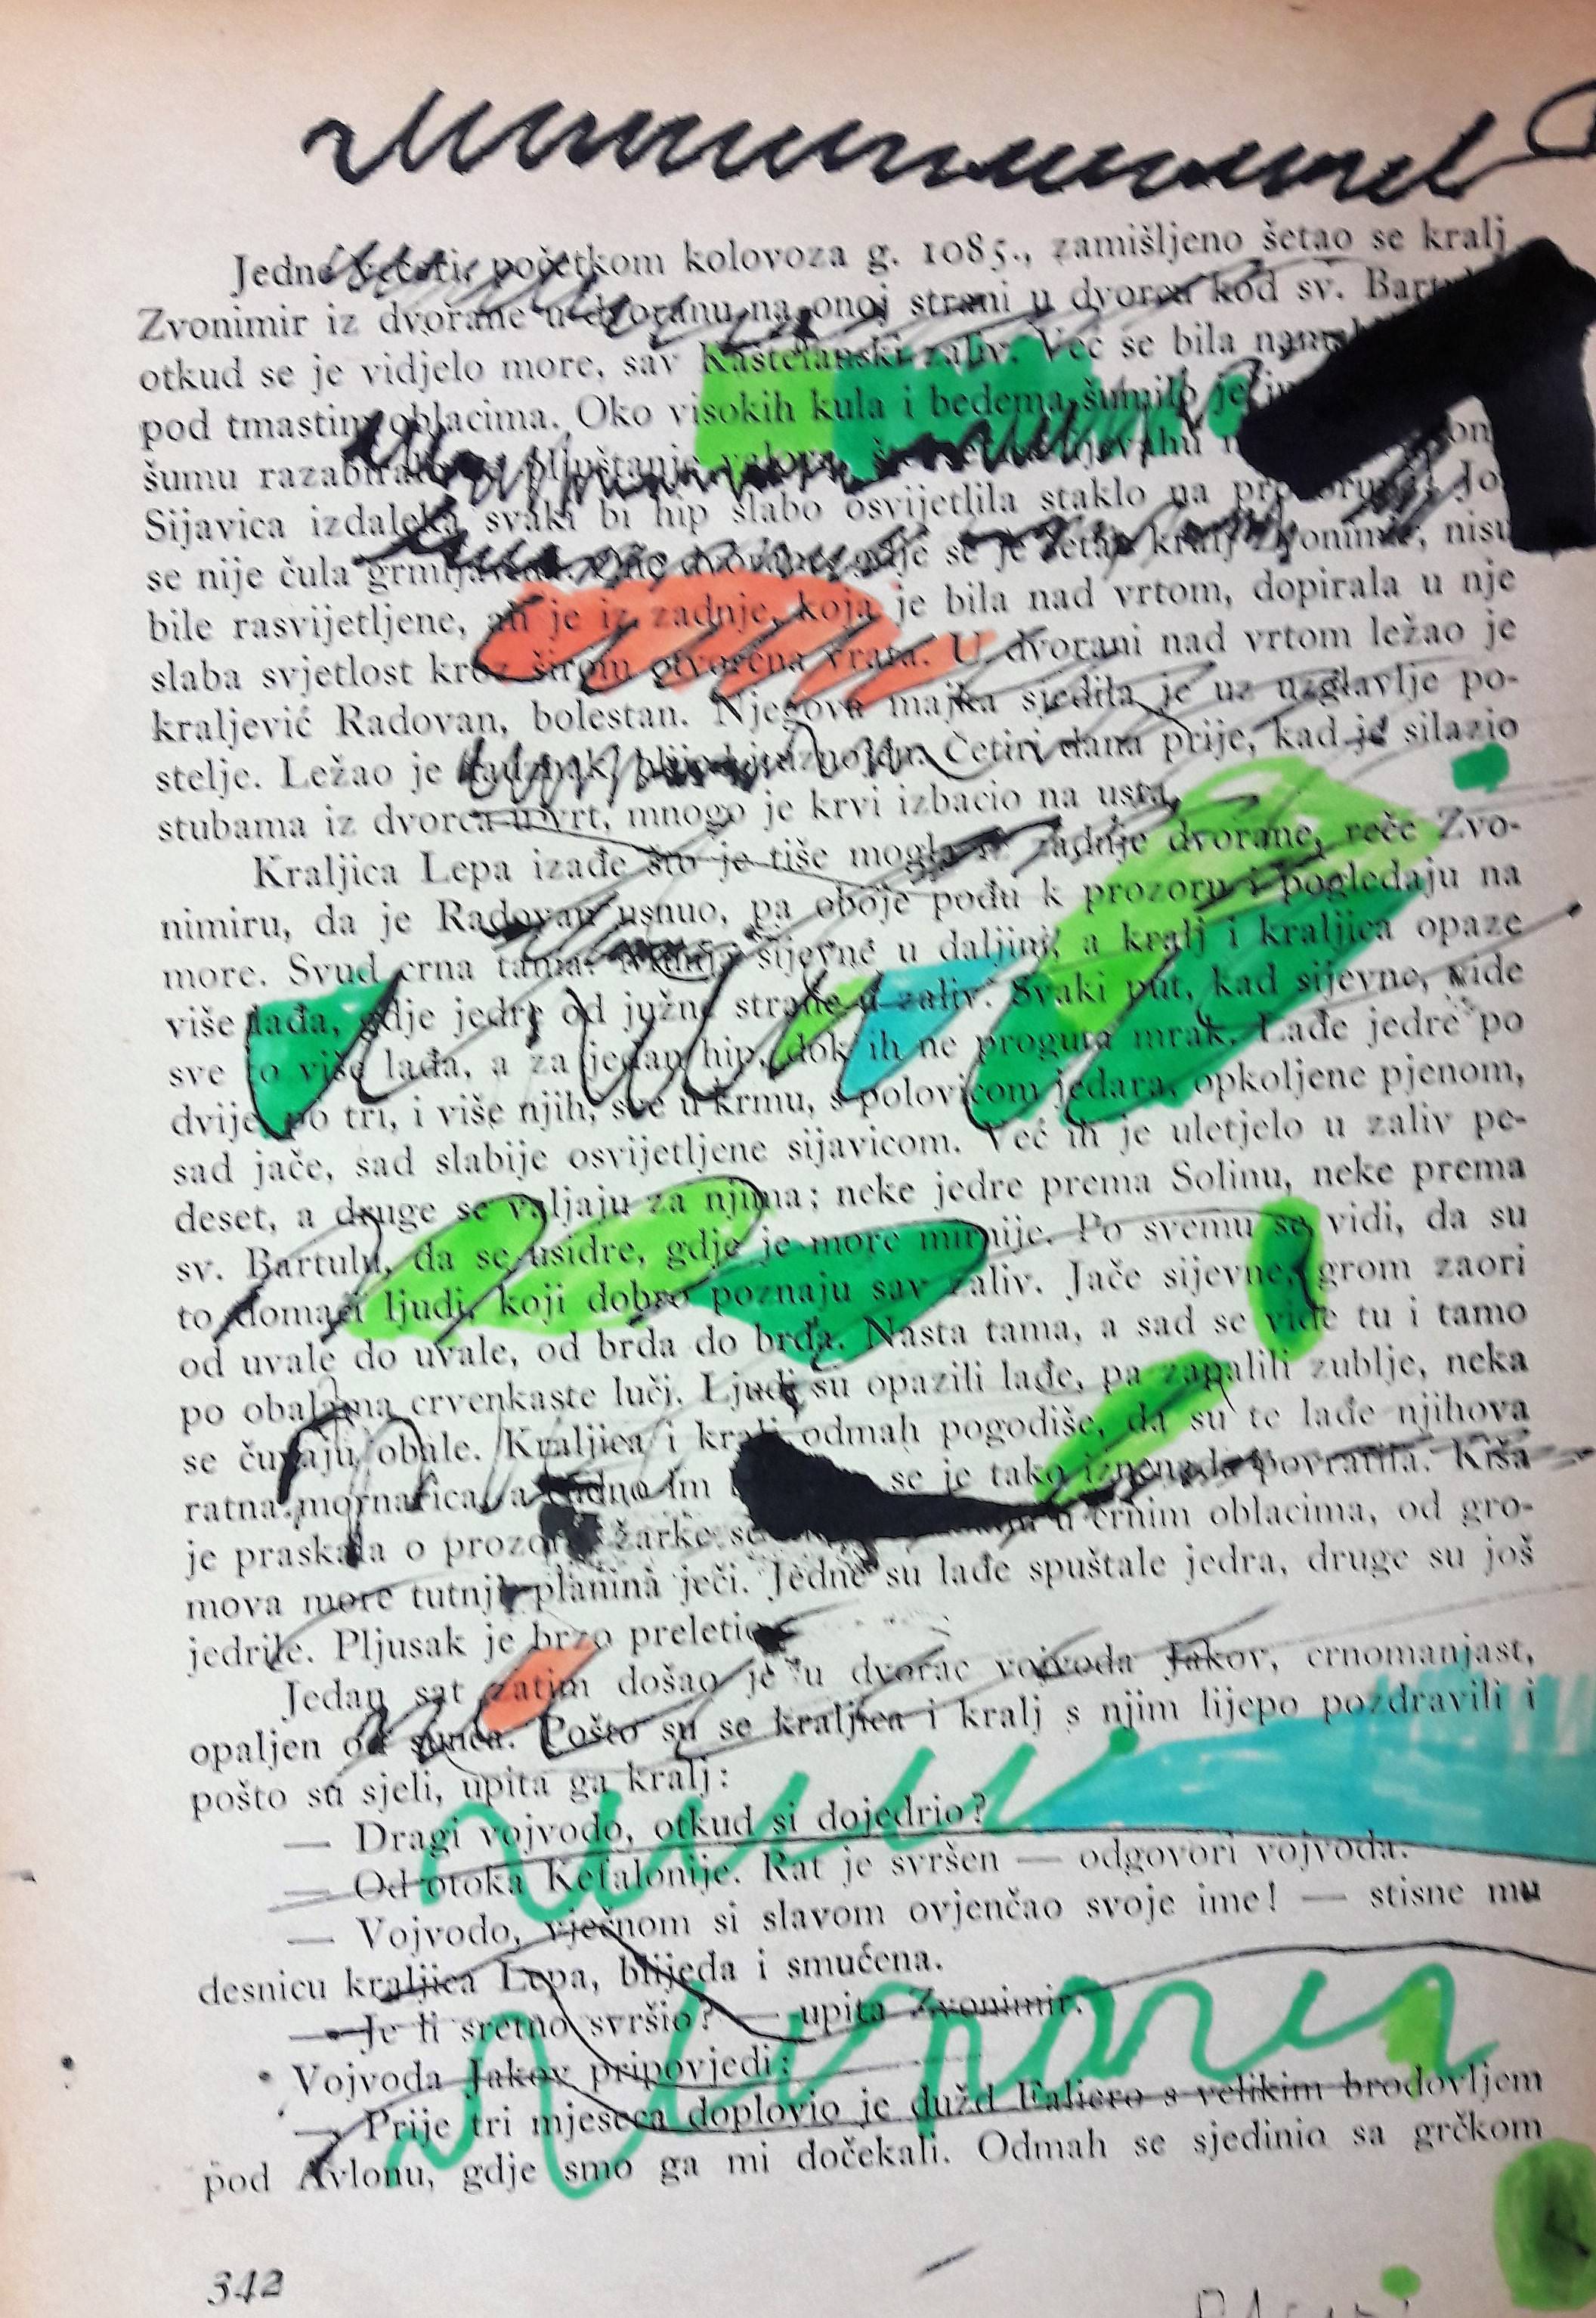 Jedne večeri, početkom kolovoza g. 1085., zamišljeno šetao se kralj
Zvonimir iz dvorane u dvoranu na onoj strani u dvorcu kod sv.
otkud se je vidjelo more, sav Kaštelanski zaliv. Već se bila
pod tmastim oblacima. Oko visokih kula i bedema šumilo je
šumu pljuštanje valova,
Sijavica izdaleka svaki bi hip slabo osvijetlila staklo na
se nije čula grmljavina. gdje se je šetao kralj Zvonimir, nisu
bile rasvijetljene, ali je iz zadnje, koja je bila nad vrtom, dopirala u nje
slaba svjetlost kroz širom otvorena vrata. U dvorani nad vrtom ležao je
kraljević Radovan, bolestan. Njegova majka sjedila je uz uzglavlje po-
stelje. Ležao je Četiri dana prije, kad je silazio
stubama iz dvorca u vrt, mnogo je krvi izbacio na usta.
Kraljica Lepa izađe što je tiše mogla iz zadnje dvorane, reče Zvo-
nimiru, da je Radovan usnuo, pa oboje pođu k prozoru i pogledaju na
more. Svud crna tama. Munja sijevne u daljini, a kralj i kraljica opaze
više lađa, gdje jedre od južne strane u zaliv. Svaki put, kad sijevne, vide
sve to više lađa, a za jedan hip, dok ih ne proguta mrak. Lađe jedre po
dvije, po tri, i više njih, sve u krmu, s polovicom jedara, opkoljene pjenom,
sad jače, sad slabije osvijetljene sijavicom. Već ih je uletjelo u zaliv pe-
deset, a druge se valjaju za njima; neke jedre prema Solinu, neke prema
sv. Bartulu, da se usidre, gdje je more mirnije. Po svemu se vidi, da su
to domaći ljudi, koji dobro poznaju sav zaliv. Jače sijevne, grom zaori
od uvale do uvale, od brda do brda. Nasta tama, a sad se vide tu i tamo
po obalama crvenkaste luči. Ljudi su opazili lađe, pa zapalili zublje, neka
se čuvaju obale. Kraljica i kralj odmah pogodiše, da su te lađe njihova
ratna mornarica, a čudno im se je tako iznenada povratila. Kiša
je praskala o prozore, žarke u crnim oblacima, od gro-
mova more tutnji, planina ječi. Jedne su lađe spuštale jedra, druge su još
jedrile. Pljusak je brzo preletio.
Jedan sat zatim došao je u dvorac vojvoda Jakov, crnomanjast,
opaljen od sunca. Pošto su se kraljica i kralj s njim lijepo pozdravili i
pošto su sjeli, upita ga kralj:
— Dragi vojvodo, otkud si dojedrio?
— Od otoka Kefalonije. Rat je svršen — odgovori vojvoda.
— Vojvodo, vječnom si slavom ovjenčao svoje ime! — stisne mu
desnicu kraljica Lepa, blijeda i smućena.
— Je li sretno svršio? — upita Zvonimir.
Vojvoda Jakov pripovjedi:
— Prije tri mjeseca doplovio je dužd Faliero s velikim brodovljem
pod Avlonu, gdje smo ga mi dočekali. Odmah se sjedinio sa grčkom
342